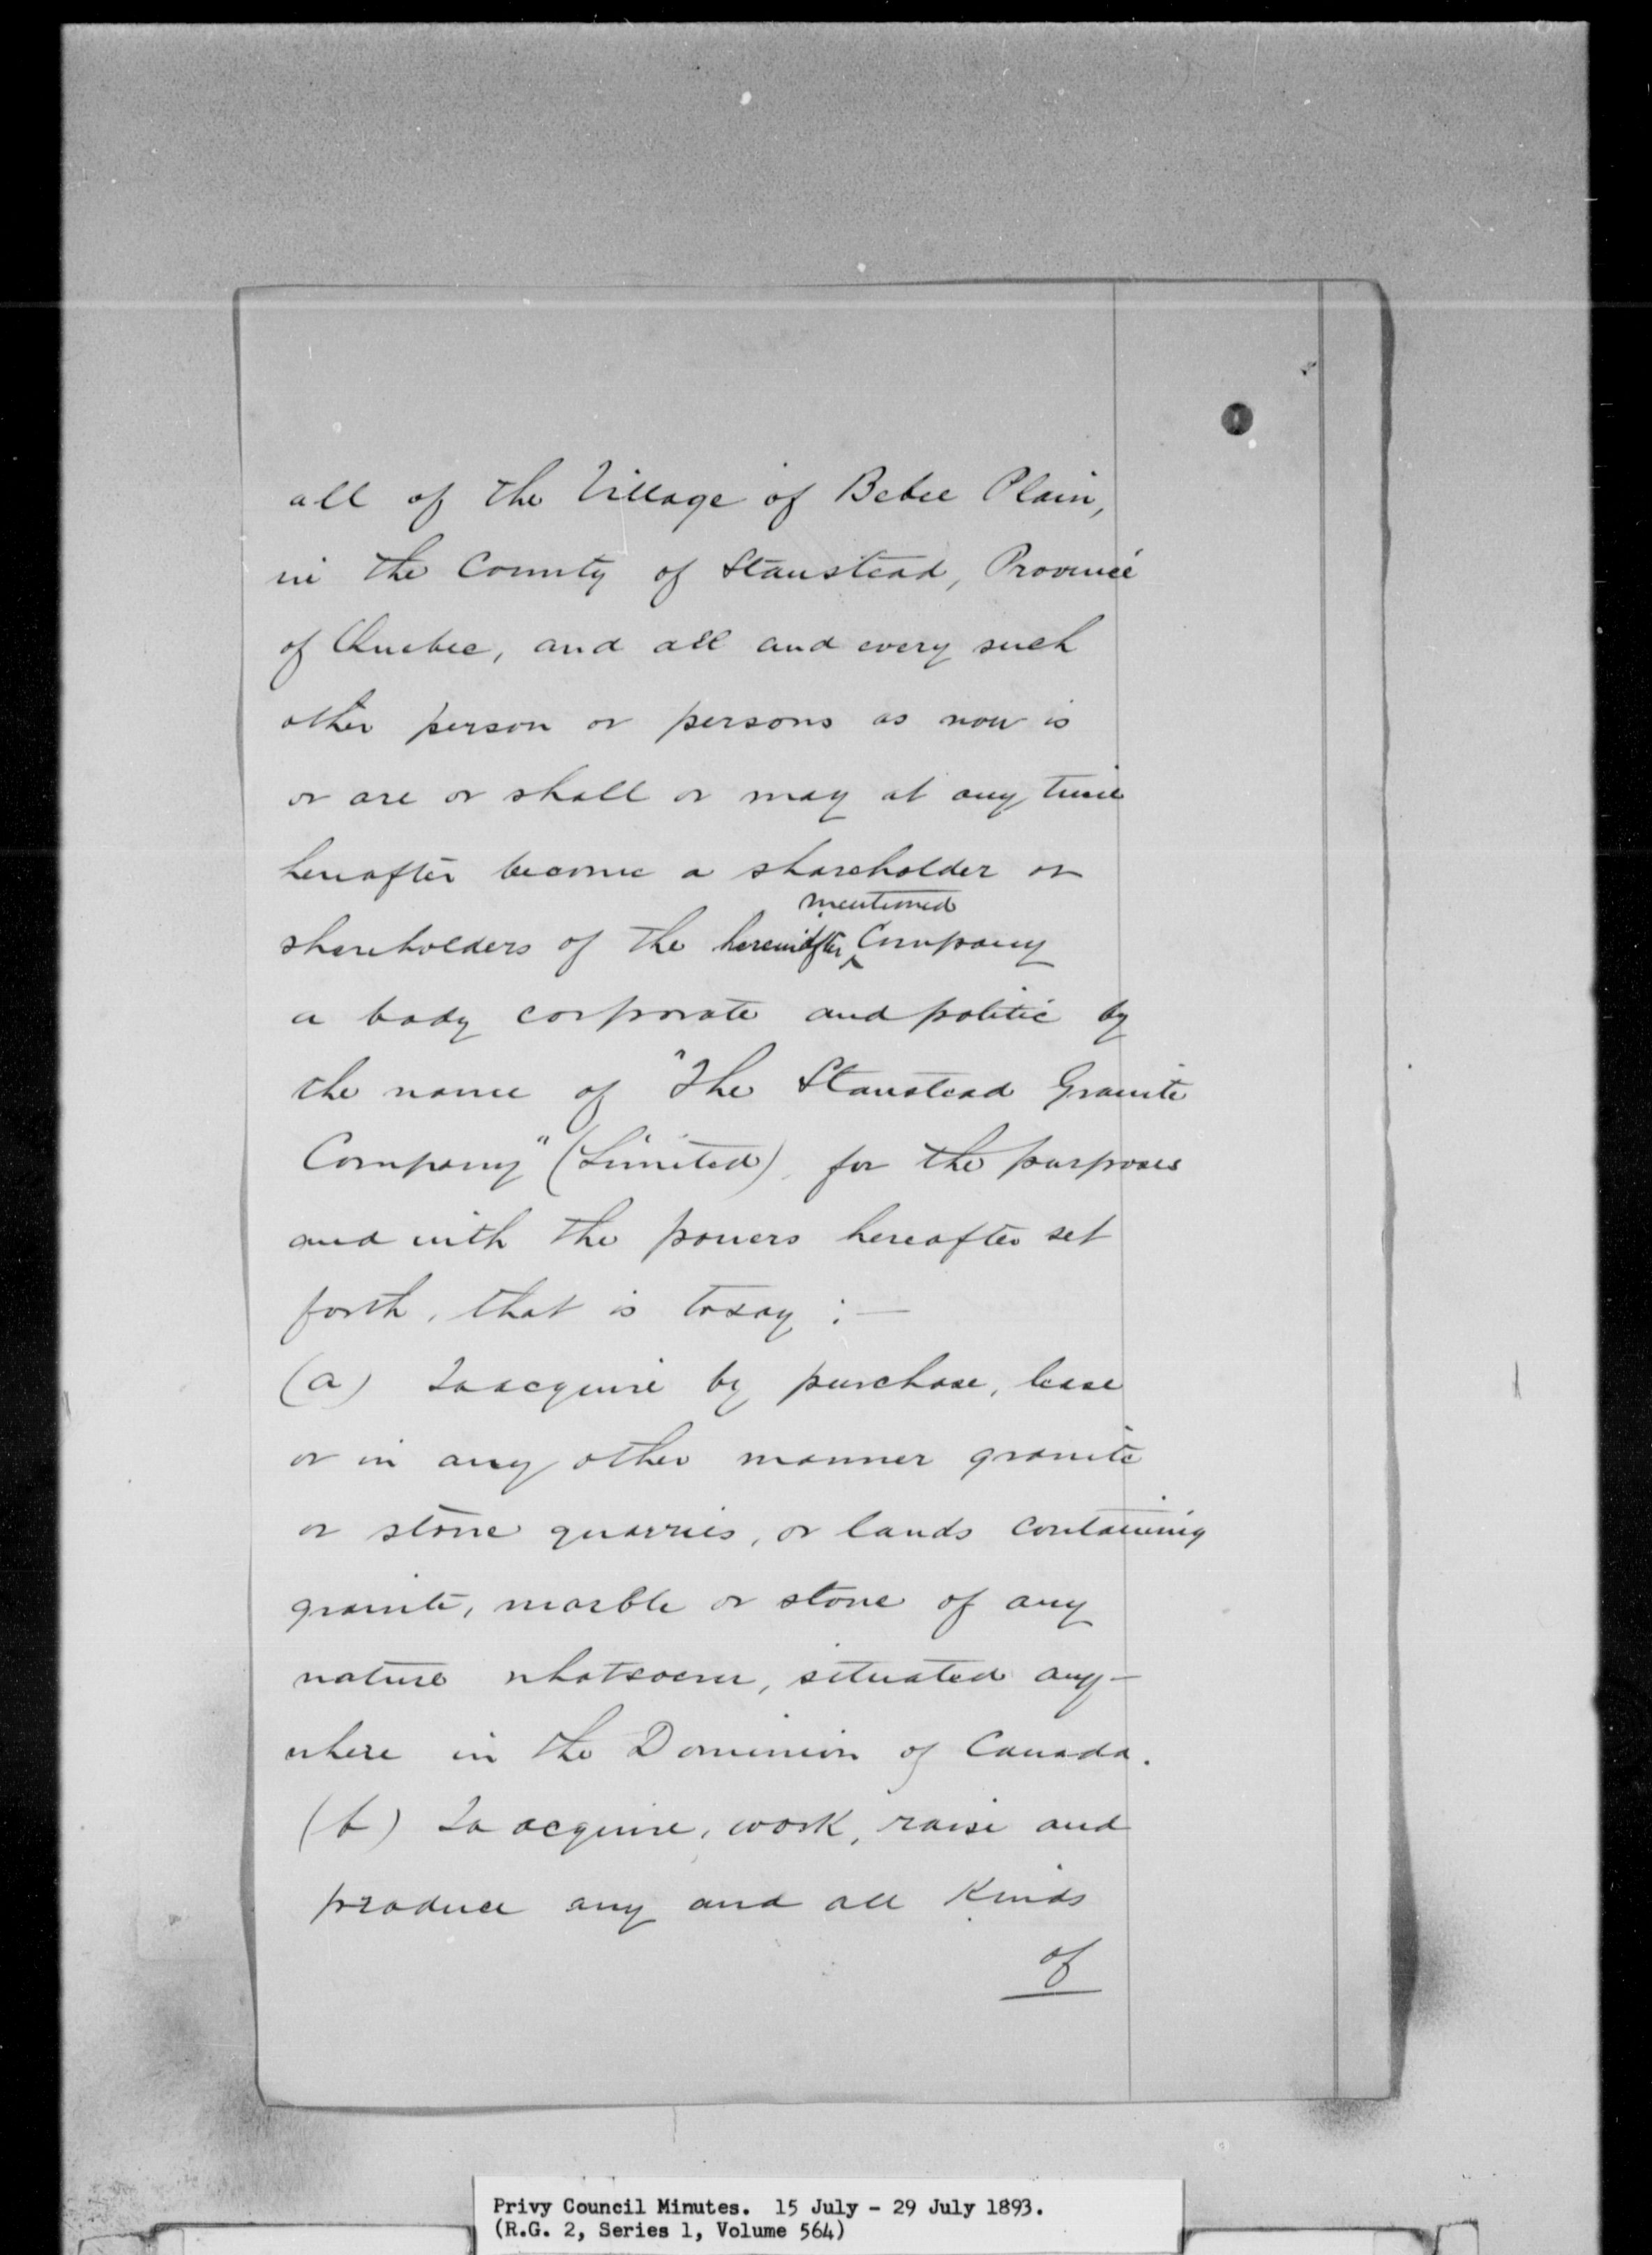 all of the Village of Bebee Plain,
in the County of Stanstead, Province
of Quebec, and all and every such
other person or persons as now is
or are or shall or may at any time
hereafter become a shareholder or
shareholders of the hereinafter mentioned Company
a body corporate and politic by
the name of "The Stanstead Granite
Company" (Limited), for the purposes
and with the powers hereafter set
forth, that is to say :—
(a) To acquire by purchase, lease
or in any other manner granite
or stone quarries, or lands containing
granite, marble or stone of any
nature whatsoever, situated any-
where in the Dominion of Canada.
(b) To acquire, work, raise and
produce any and all kinds
of
Privy Council Minutes. 15 July - 29 July 1893.
(R.G. 2, Series 1, Volume 564)